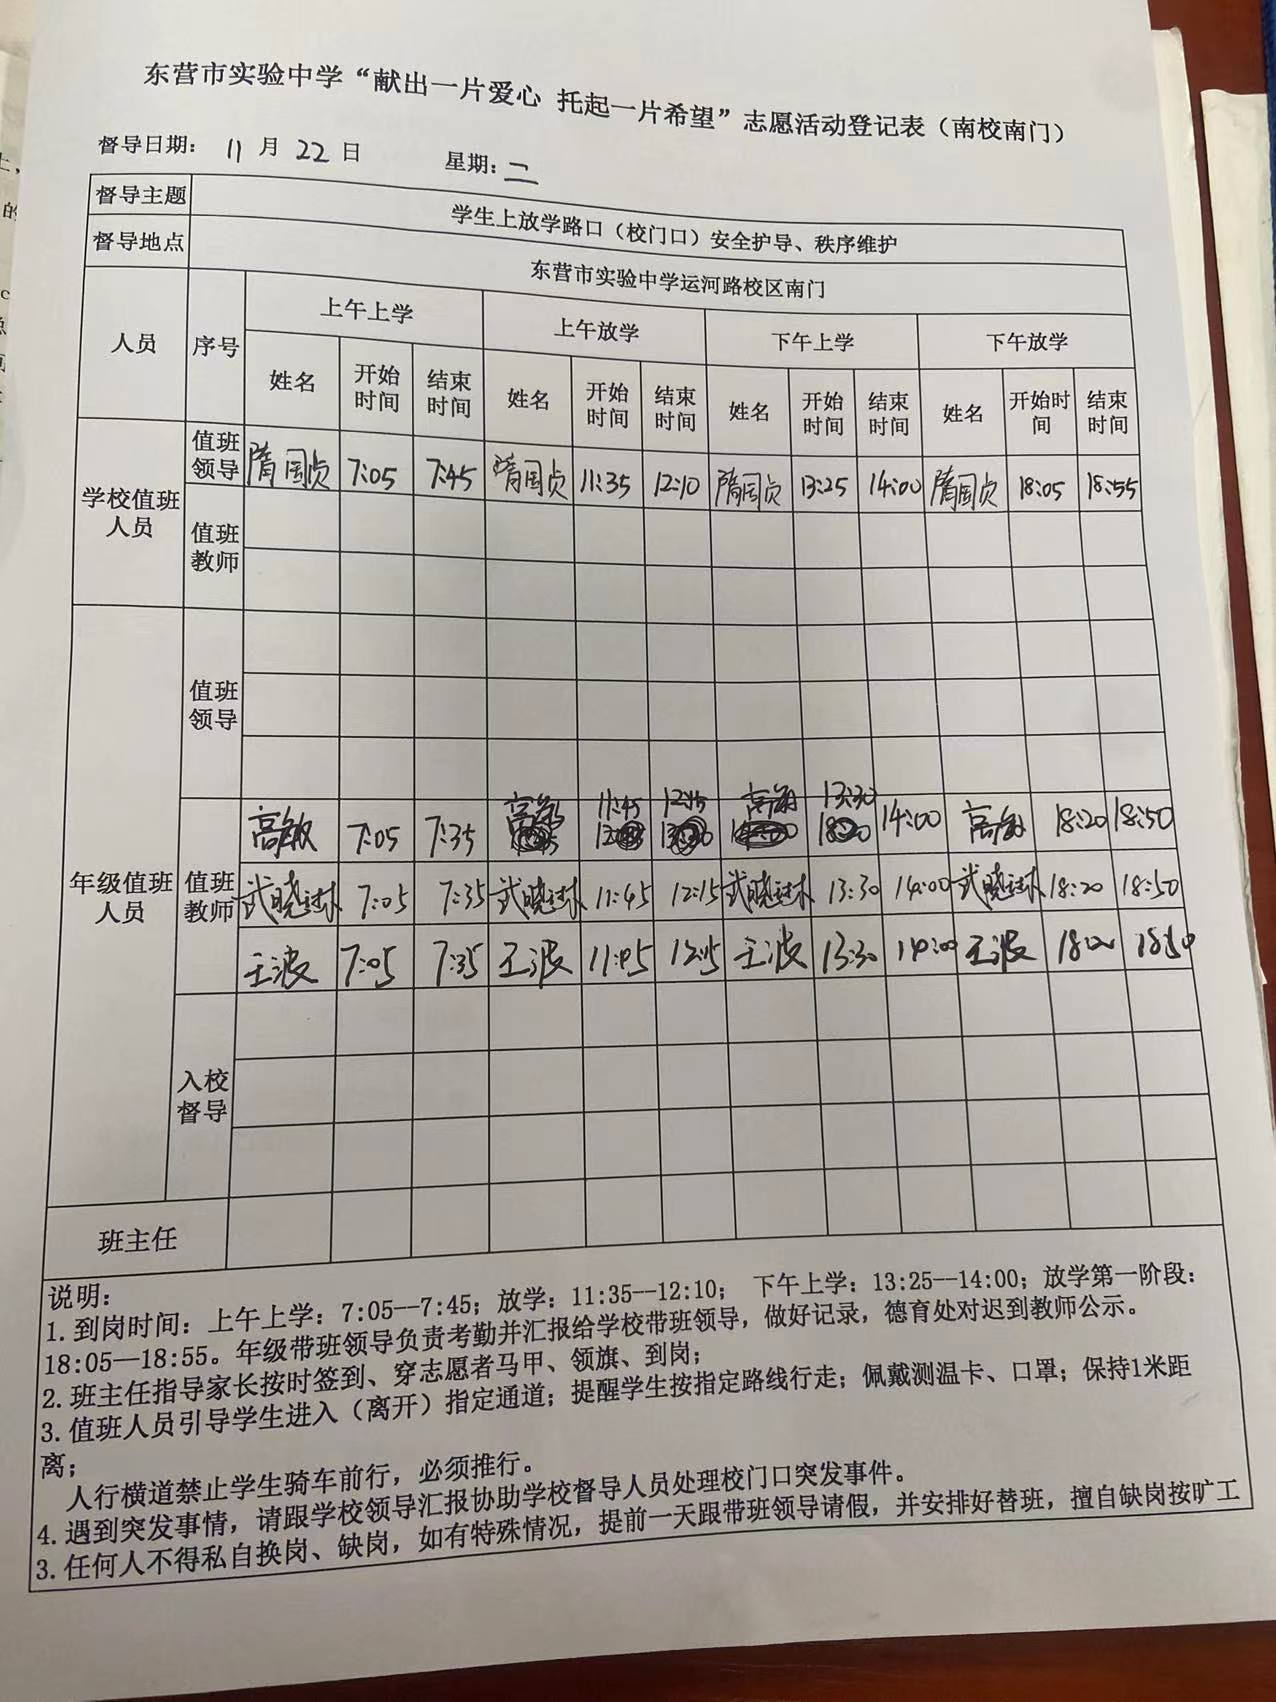 东营市实验中学“献出一片爱心 托起一片希望”志愿活动登记表（南校南门）
督导日期： 11 月 22 日 星期：二
督导主题 学生上放学路口（校门口）安全护导、秩序维护
督导地点 东营市实验中学运河路校区南门
人员 序号 上午上学 上午放学 下午上学 下午放学
姓名 开始时间 结束时间 姓名 开始时间 结束时间 姓名 开始时间 结束时间 姓名 开始时间 结束时间
学校值班人员
值班领导 隋国贞 7:05 7:45 隋国贞 11:35 12:10 隋国贞 13:25 14:00 隋国贞 18:05 18:55
值班教师
年级值班人员
值班领导
值班教师
高敏 7:05 7:35 高敏 11:45 12:15 高敏 13:30 14:00 高敏 18:20 18:50
武晓琳 7:05 7:35 武晓琳 11:45 12:15 武晓琳 13:30 14:00 武晓琳 18:20 18:50
王波 7:05 7:35 王波 11:45 12:15 王波 13:30 14:00 王波 18:50
入校督导
班主任
说明：
1.到岗时间：上午上学：7:05--7:45；放学：11:35--12:10； 下午上学：13:25--14:00；放学第一阶段：
18:05—18:55。年级带班领导负责考勤并汇报给学校带班领导，做好记录，德育处对迟到教师公示。
2.班主任指导家长按时签到、穿志愿者马甲、领旗、到岗；
3.值班人员引导学生进入（离开）指定通道；提醒学生按指定路线行走；佩戴测温卡、口罩；保持1米距
离；
人行横道禁止学生骑车前行，必须推行。
4.遇到突发事情，请跟学校领导汇报协助学校督导人员处理校门口突发事件。
3.任何人不得私自换岗、缺岗，如有特殊情况，提前一天跟带班领导请假，并安排好替班，擅自缺岗按旷工